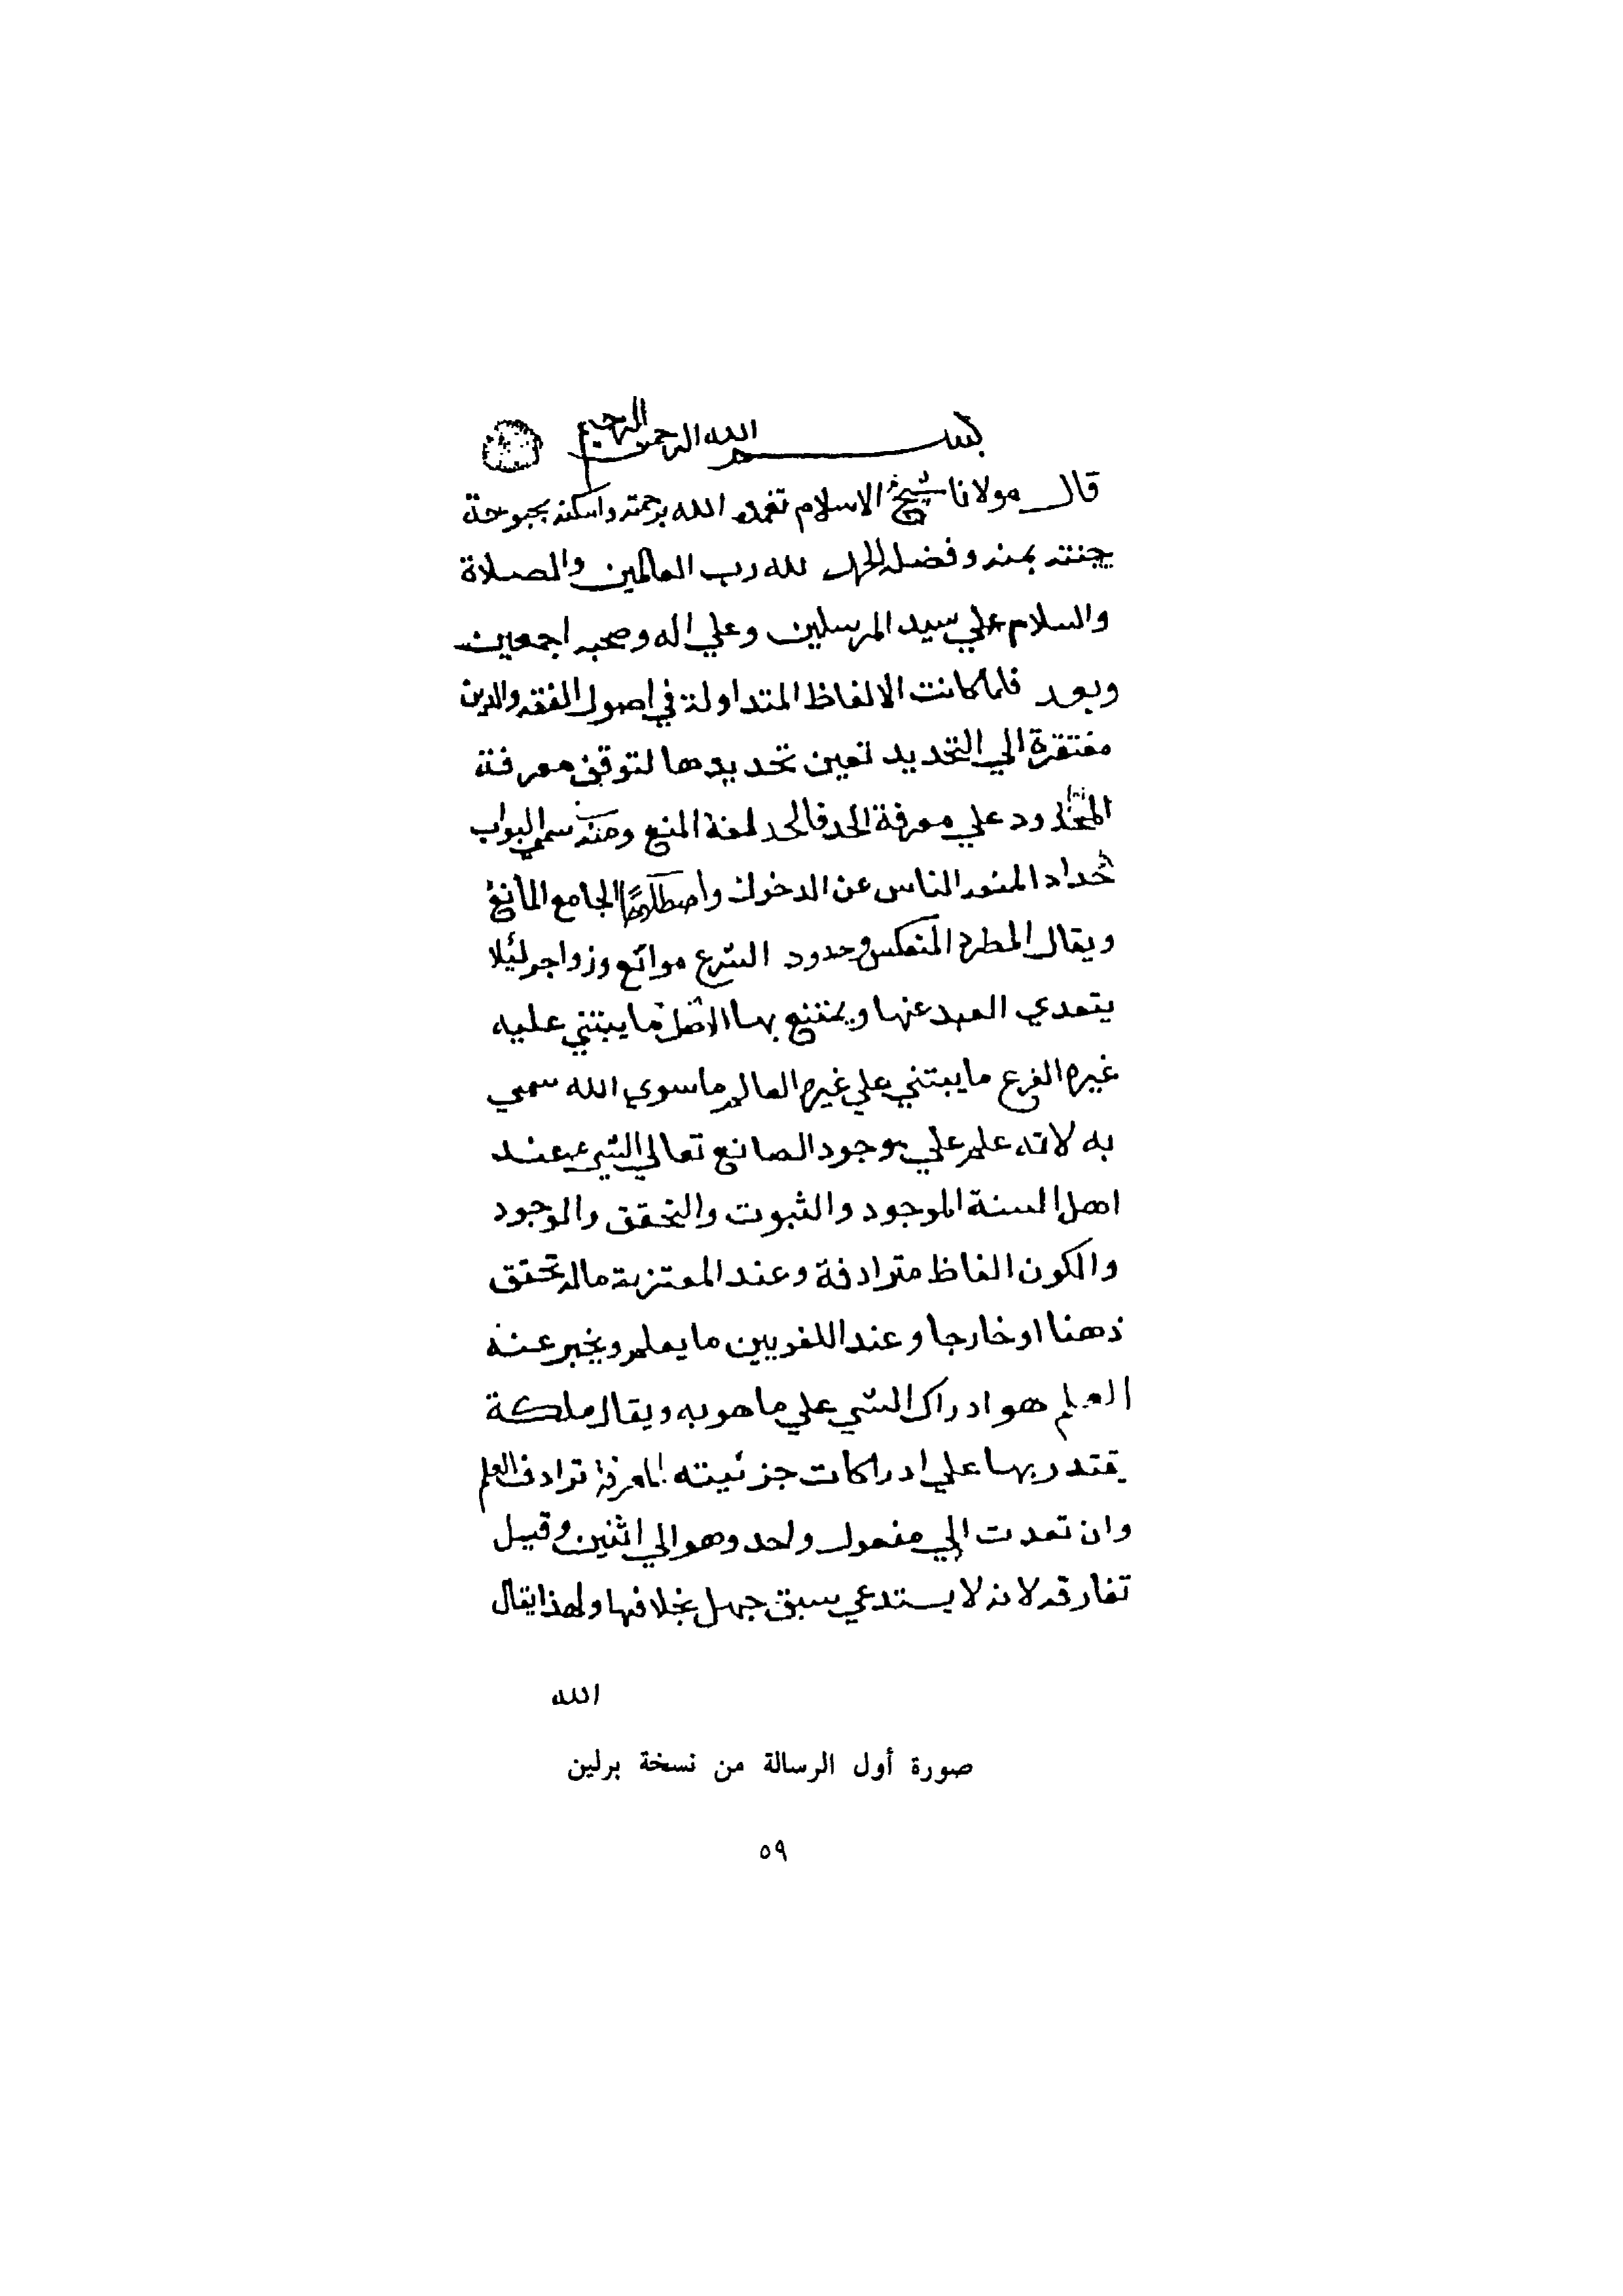 بسم الله الرحمن الرحيم
قال مولانا شيخ الاسلام تغمده الله برحمته واسكنه بحبوحة
جنته بمنه وفضله الحمد لله رب العالمين والصلاة
والسلام علي سيد المرسلين وعلي اله وصحبه اجمعين
وبعد فلما كانت الالفاظ المتداولة في اصول الفقه والدين
مفتقرة الي التحديد تعين تحديدها لتوقف معرفة
المحدود علي معرفة الحد فالحد لغة المنع ومنه سمي البواب
حدادا لمنعه الناس عن الدخول واصطلاحا الجامع المانع
ويقال المطرد المنعكس وحدود الشرع موانع وزواجر لئلا
يتعدي العبد عنها ويمتنع بها الاصل ما يبتني عليه
غيره الفرع ما يبتني علي غيره العالم ما سوي الله سمي
به لانه علم علي وجود الصانع تعالي الشيء عند
اهل السنة الموجود والثبوت والتحقق والوجود
والكون الفاظ مترادفة وعند المعتزلة ماله تحقق
ذهنا او خارجا وعند اللغويين ما يعلم ويخبر عنه
العلم هو ادراك الشي علي ما هو به ويقال ملكة
يقتدر بها علي ادراكات جزئيته المعرفة ترادف العلم
وان تعدت الي مفعول واحد وهو الي اثنين وقيل
تفارقه لانه لا يستدعي سبق جهل بخلافها ولهذا يقال
الله
صورة أول الرسالة من نسخة برلين
٥٩